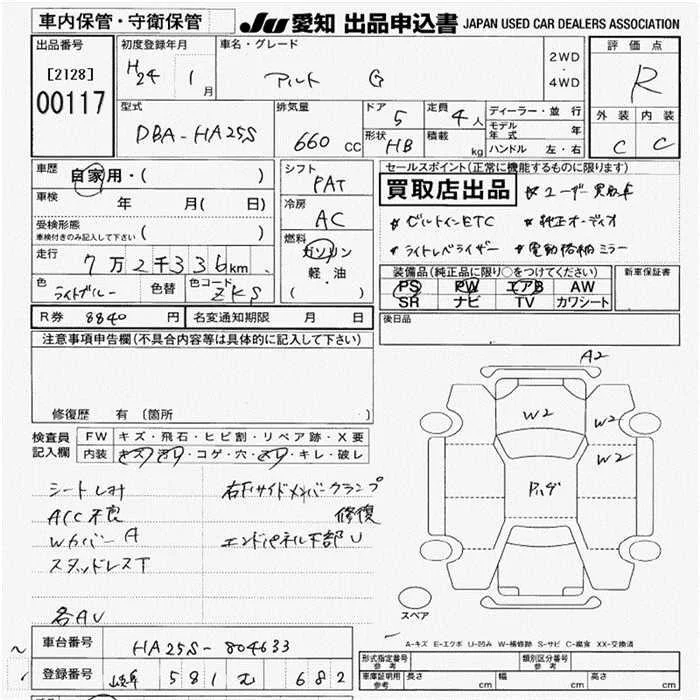 車内保管・守衛保管
JU 愛知 出品申込書 JAPAN USED CAR DEALERS ASSOCIATION
出品番号
[2128]
00117
初度登録年月
H24 1月
車名・グレード
アルト G
2WD
・
4WD
評価点
R
外装 内装
C C
型式
DBA-HA25S
排気量
660 CC
ドア 5
形状 HB
定員 4人
積載 kg
ディーラー・並行
モデル年式 年
ハンドル 左・右
車歴 自家用・( )
車検 年 月( 日)
受検形態
車検付きのみ記入して下さい ( )
走行 7万2千336km
色 ライトブルー 色替 色コード ZKS
R券 8840円 名変通知期限 月 日
シフト
PAT
冷房
AC
燃料
ガソリン
軽・油
( )
セールスポイント(正常に機能するものに限り)
買取店出品 ※ユーザー買取車
※ビルトインETC ※純正オーディオ
※ライトレベライザー ※電動格納ミラー
装備品(純正品に限り○をつけてください)
PS PW エアB AW
SR ナビ TV カワシート
新車保証書
後日品
注意事項申告欄(不具合内容等は具体的に記入して下さい)
修復歴 有 〔箇所 〕
検査員記入欄
FW キズ・飛石・ヒビ割・リペア跡・X要
内装 キズ・汚れ・コゲ・穴・スリ・キレ・破レ
シートしみ
A/C不良
WカバーA
スタッドレスT
各AU
右Fサイドメンバークランプ
修復
エンドパネル下部U
A2
W2
W2
W2
Pハゲ
スペア
A-キズ E-エクボ U-凹み W-補修跡 S-サビ C-腐食 XX-交換済
車台番号 HA25S-804633
登録番号 岐阜 581 む 682
形式指定番号 参考
類別区分番号 参考
車庫証明用参考 長さ cm 幅 cm 高さ cm